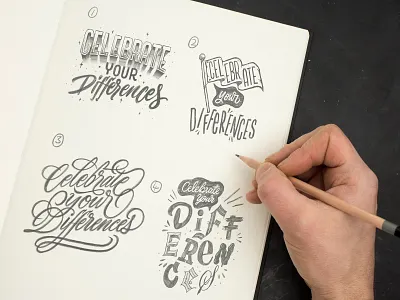 1
CELEBRATE
YOUR
Differences
2
CELEBRATE
your
DIFFERENCES
3
Celebrate
your
Differences
4
Celebrate
Your
DIFF
EREN
CES